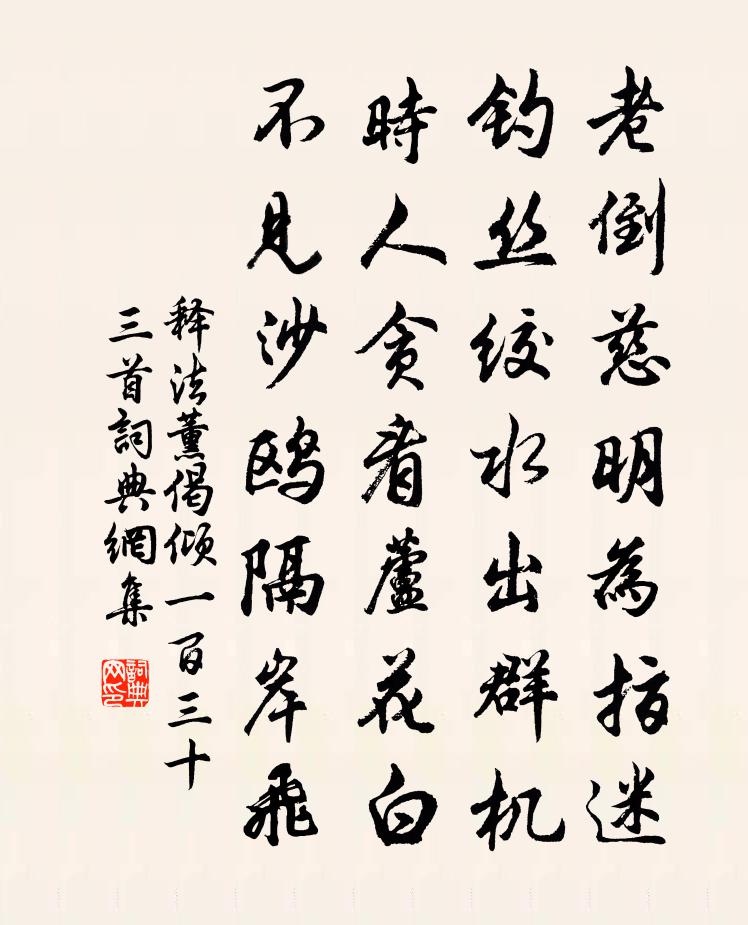 老倒慈明為指迷
钓丝绞水出群机
時人贪看蘆花白
不见沙鸥隔岸飛
释法薰偈倾一百三十
三首詞典網集
詞典网印